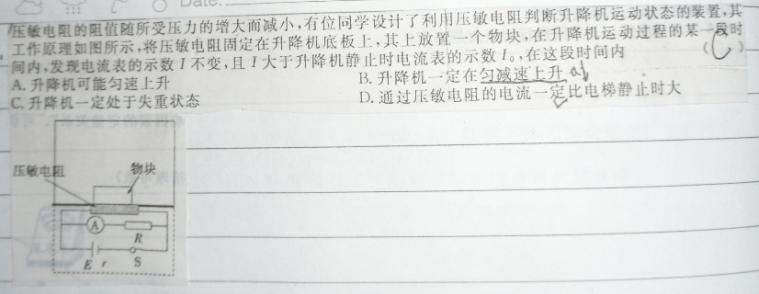 Date:
压敏电阻的阻值随所受压力的增大而减小,有位同学设计了利用压敏电阻判断升降机运动状态的装置,其
工作原理如图所示,将压敏电阻固定在升降机底板上,其上放置一个物块,在升降机运动过程的某一段时
间内,发现电流表的示数 I 不变,且 I 大于升降机静止时电流表的示数 I₀,在这段时间内 ( C )
A. 升降机可能匀速上升 B. 升降机一定在匀减速上升 a↓
C. 升降机一定处于失重状态 D. 通过压敏电阻的电流一定比电梯静止时大
压敏电阻 物块
A
R
E r S